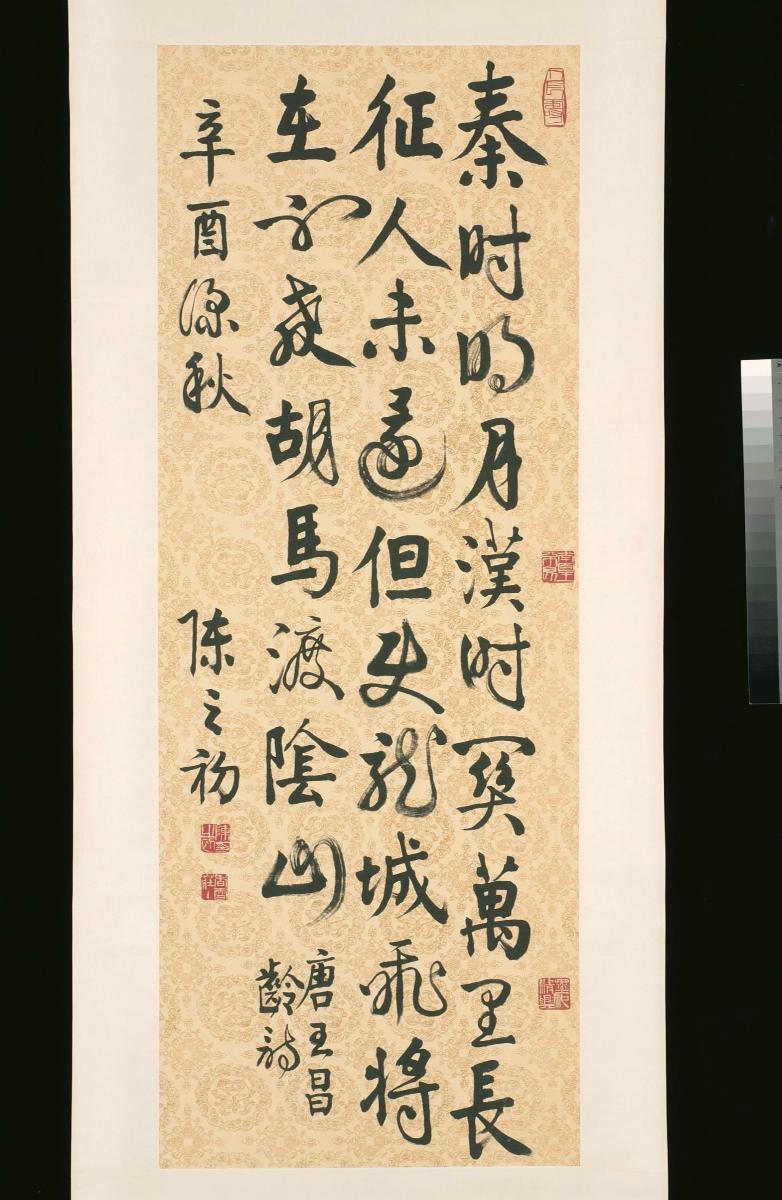 秦时明月漢时關萬里長
征人未還但使龍城飛将
在不教胡馬渡陰山
唐王昌
齡詩
辛酉深秋
陈之初